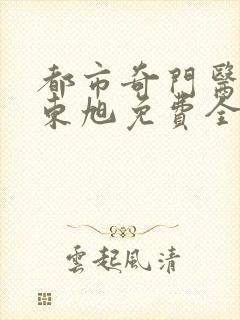 都市奇門醫
東旭免費全
雲起風清